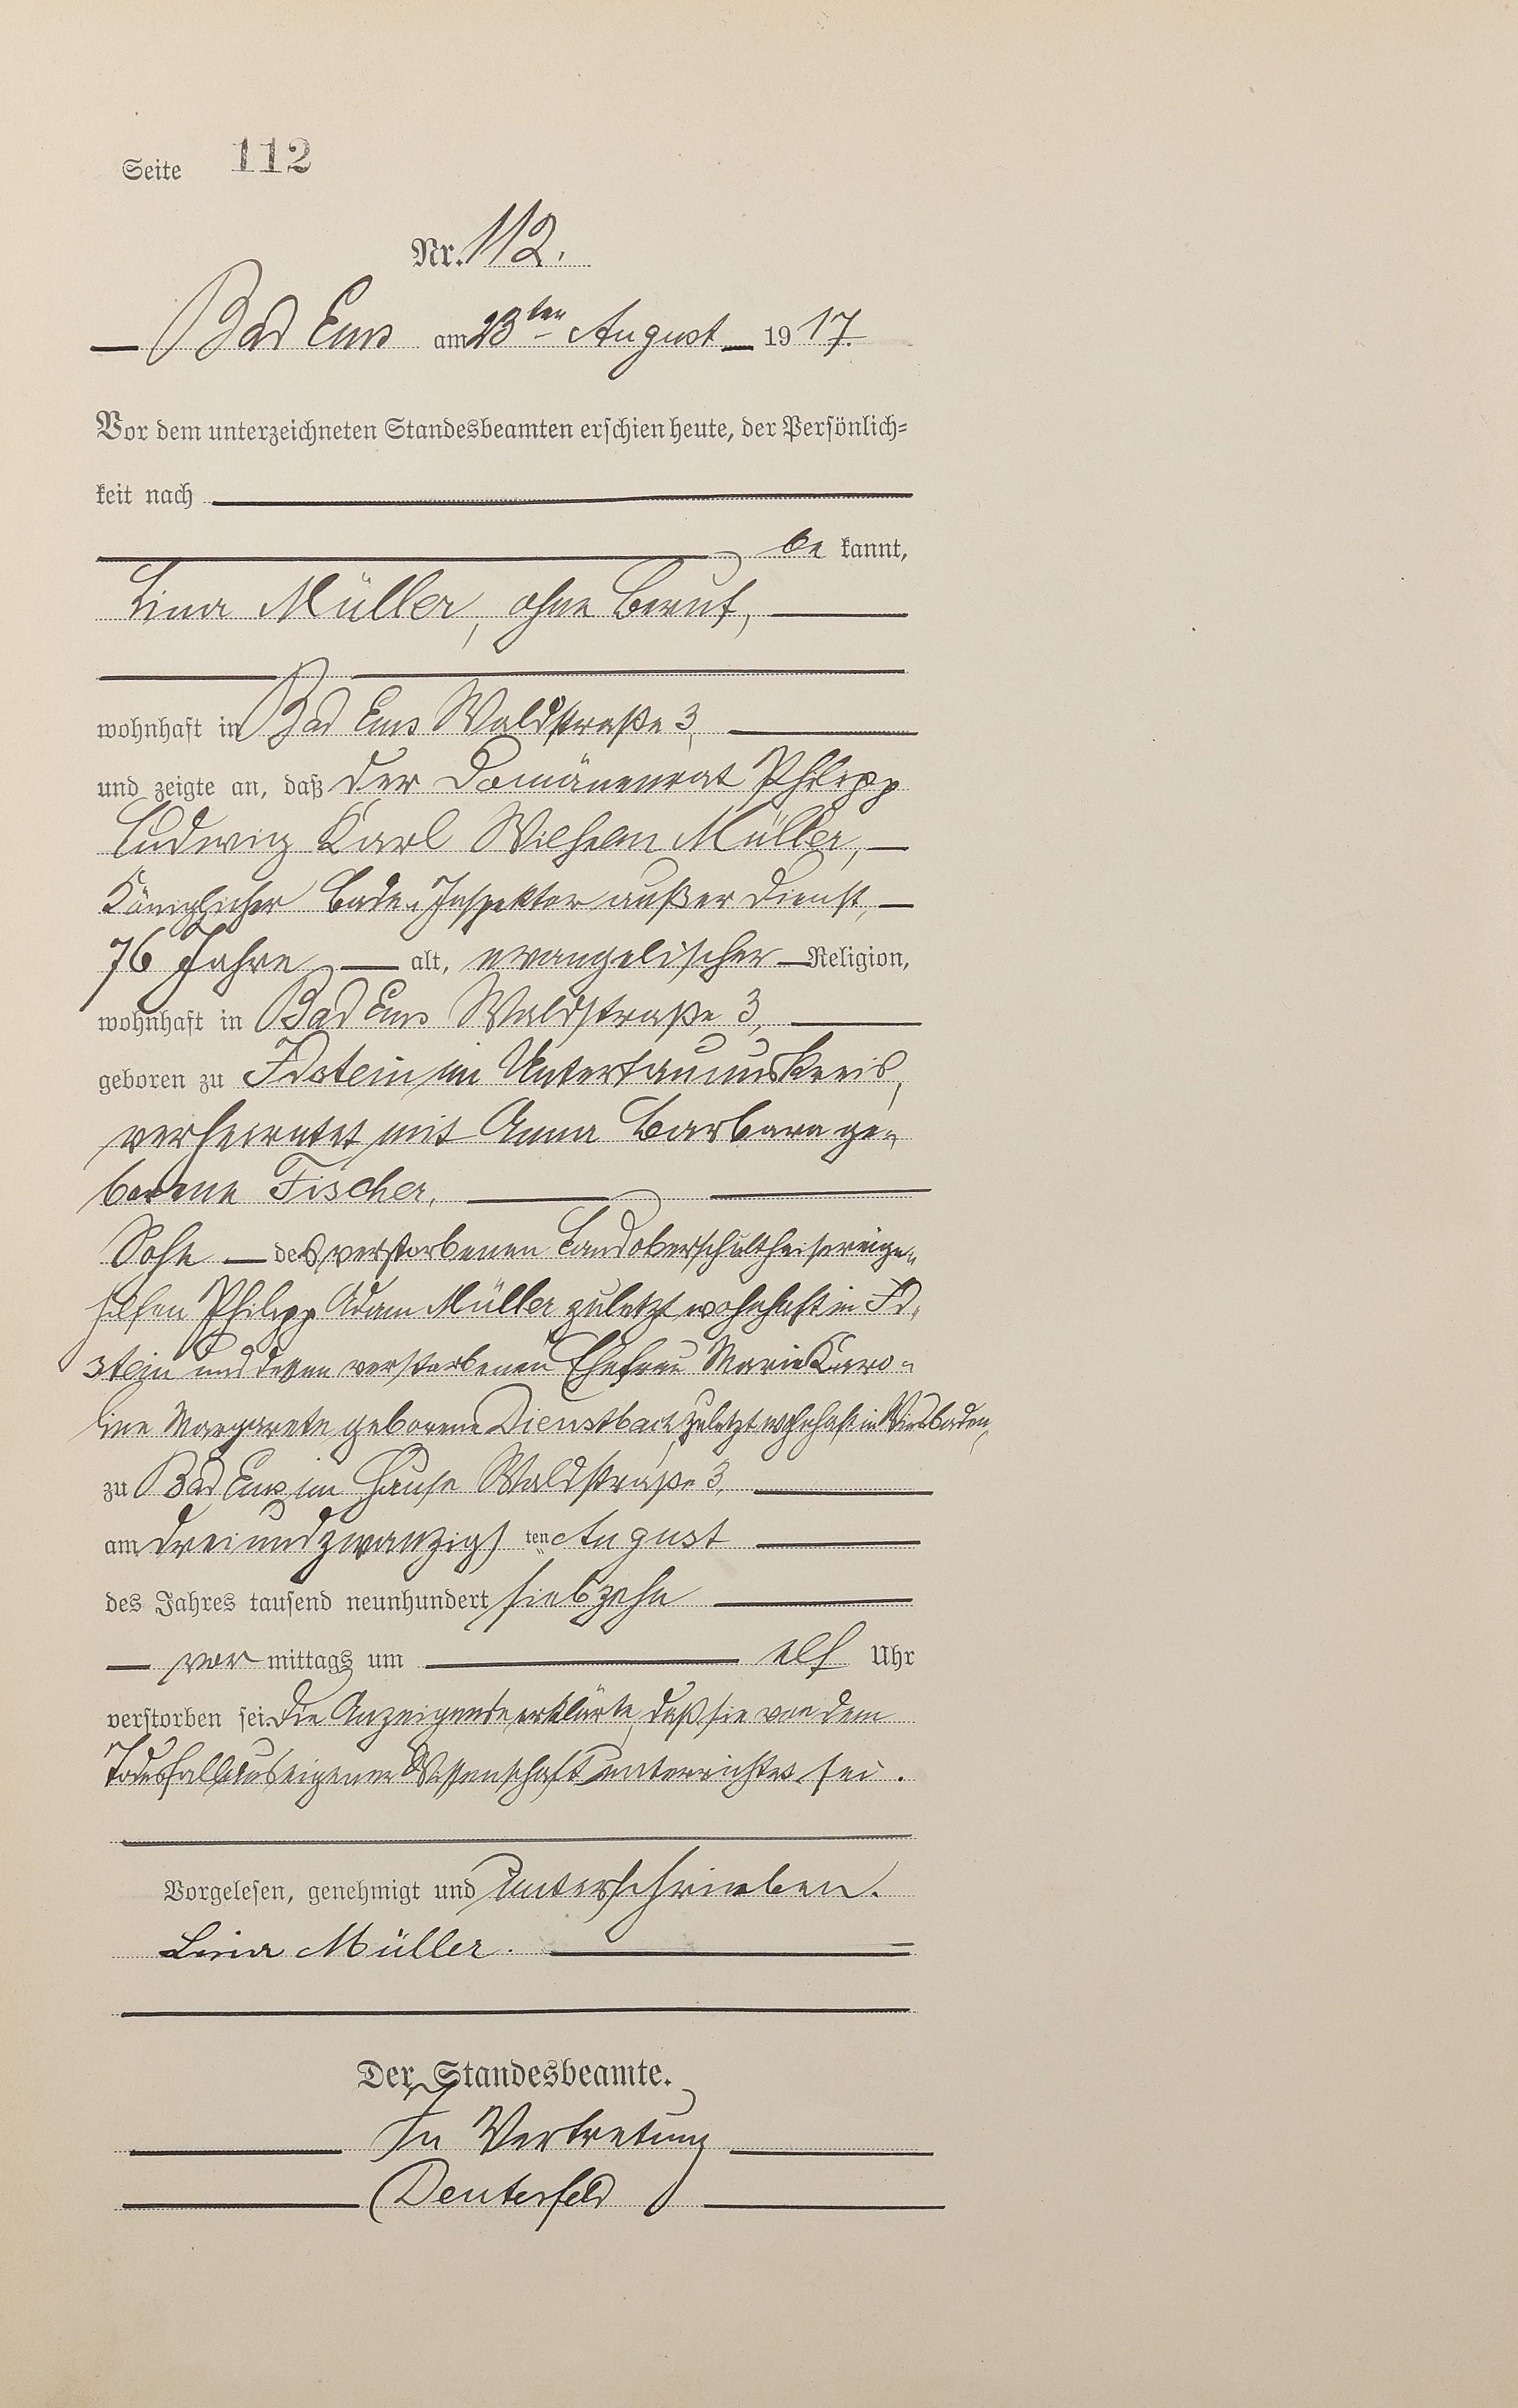 Seite 112
Nr. 112.
Bad Ems am 23ten August 1917.
Vor dem unterzeichneten Standesbeamten erschien heute, der Persönlich=
keit nach
be kannt,
Lina Müller, ohne Beruf,
wohnhaft in Bad Ems Waldstraße 3,
und zeigte an, daß der Domänenrat Philipp
Ludwig Karl Wilhelm Müller,
Königlicher Bade-Inspektor außer Dienst,
76 Jahre alt, evangelischer Religion,
wohnhaft in Bad Ems Waldstraße 3,
geboren zu Idstein im Untertaunuskreis,
verheiratet mit Anna Barbara ge-
borene Fischer,
Sohn des verstorbenen Landoberschultheisereige-
hilfen Philipp Adam Müller zuletzt wohnhaft in Id-
stein und dessen verstorbenen Ehefrau Marie Karo-
line Margarete geborene Dienstbach, zuletzt wohnhaft in Wiesbaden,
zu Bad Ems im Hause Waldstraße 3,
am dreiundzwanzigsten August
des Jahres tausend neunhundert siebzehn
vor mittags um elf Uhr
verstorben sei. Die Anzeigende erklärte, daß sie von dem
Todesfall aus eigener Wissenschaft unterrichtet sei.
Vorgelesen, genehmigt und unterschrieben.
Lina Müller.
Der Standesbeamte.
In Vertretung
Deuterfeld